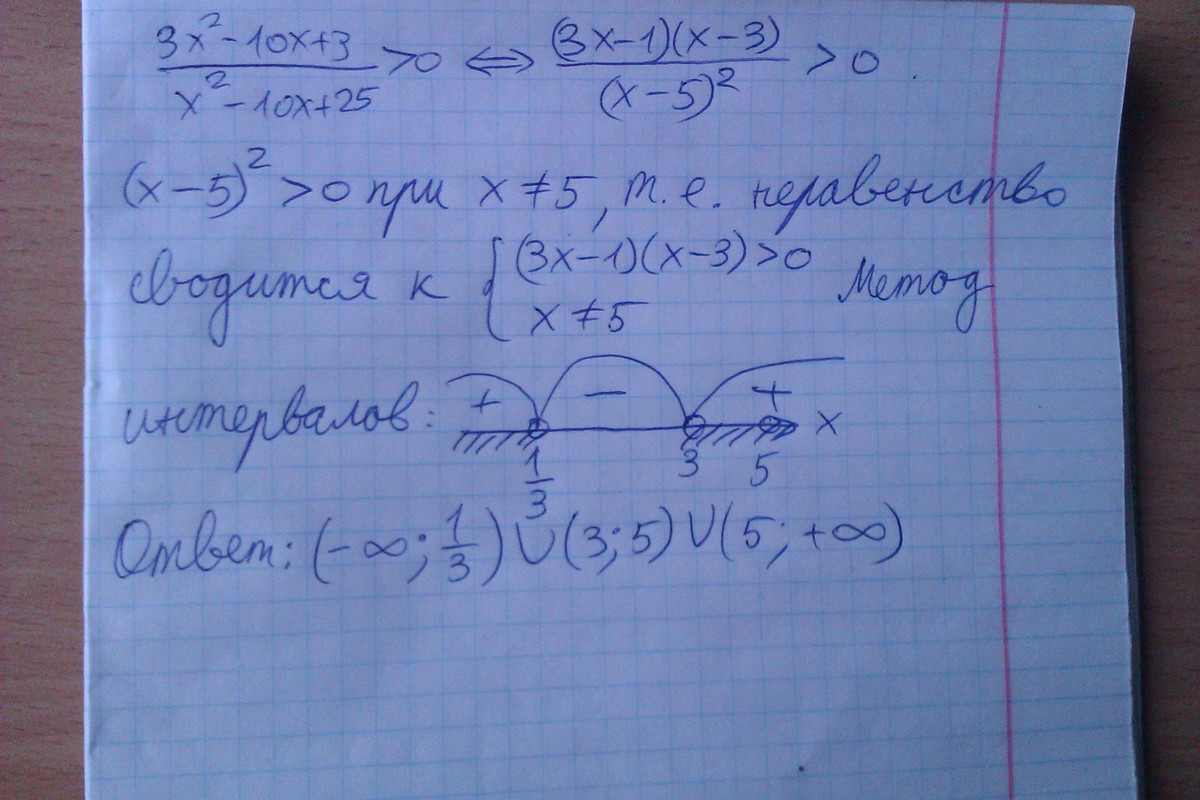 (3x²-10x+3)/(x²-10x+25) >0 ⇔ ((3x-1)(x-3))/((x-5)²) >0.
(x-5)² >0 при x≠5, т.е. неравенство
сводится к { (3x-1)(x-3)>0 Метод
x≠5
интервалов: + - + x
1/3 3 5
Ответ: (-∞; 1/3) ∪ (3; 5) ∪ (5; +∞)